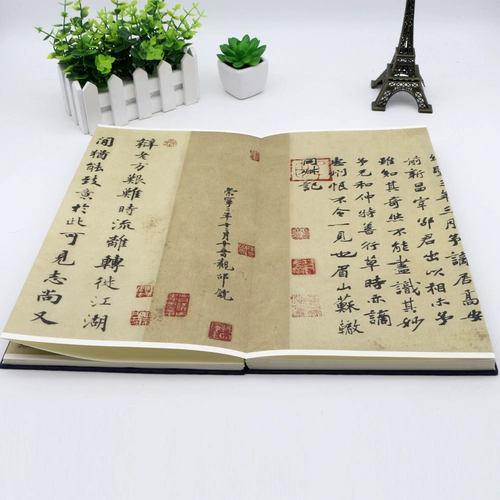 紹聖三年三月予謫居高安
前新昌宰邵君出以相示予
雖知其奇然不能盡識其妙
予兄和仲特善行草時亦謫
惠州恨不令一見也眉山蘇轍
同叔記
崇寧年十月日觀邵
辯老方艱難時流離轉徙江湖
間猶能致意於此可見志尚又